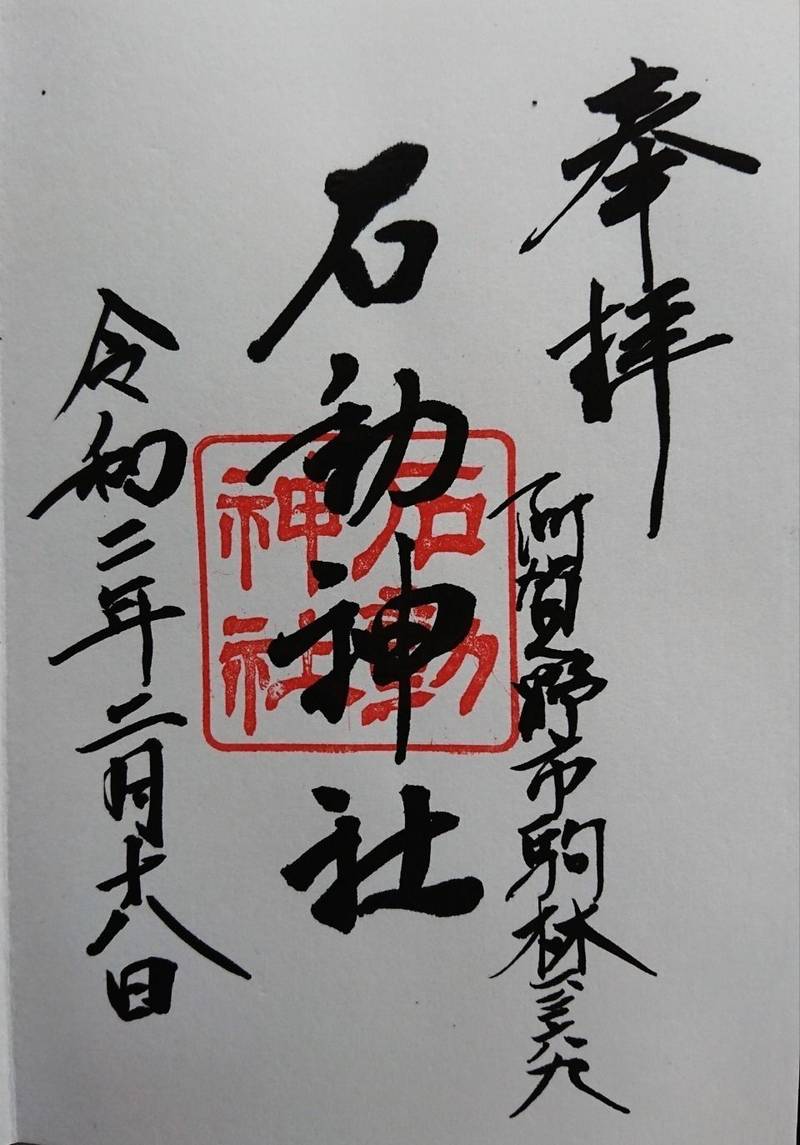 奉拝
阿賀野市駒林
石動神社
石動
神社
令和二年二月十八日